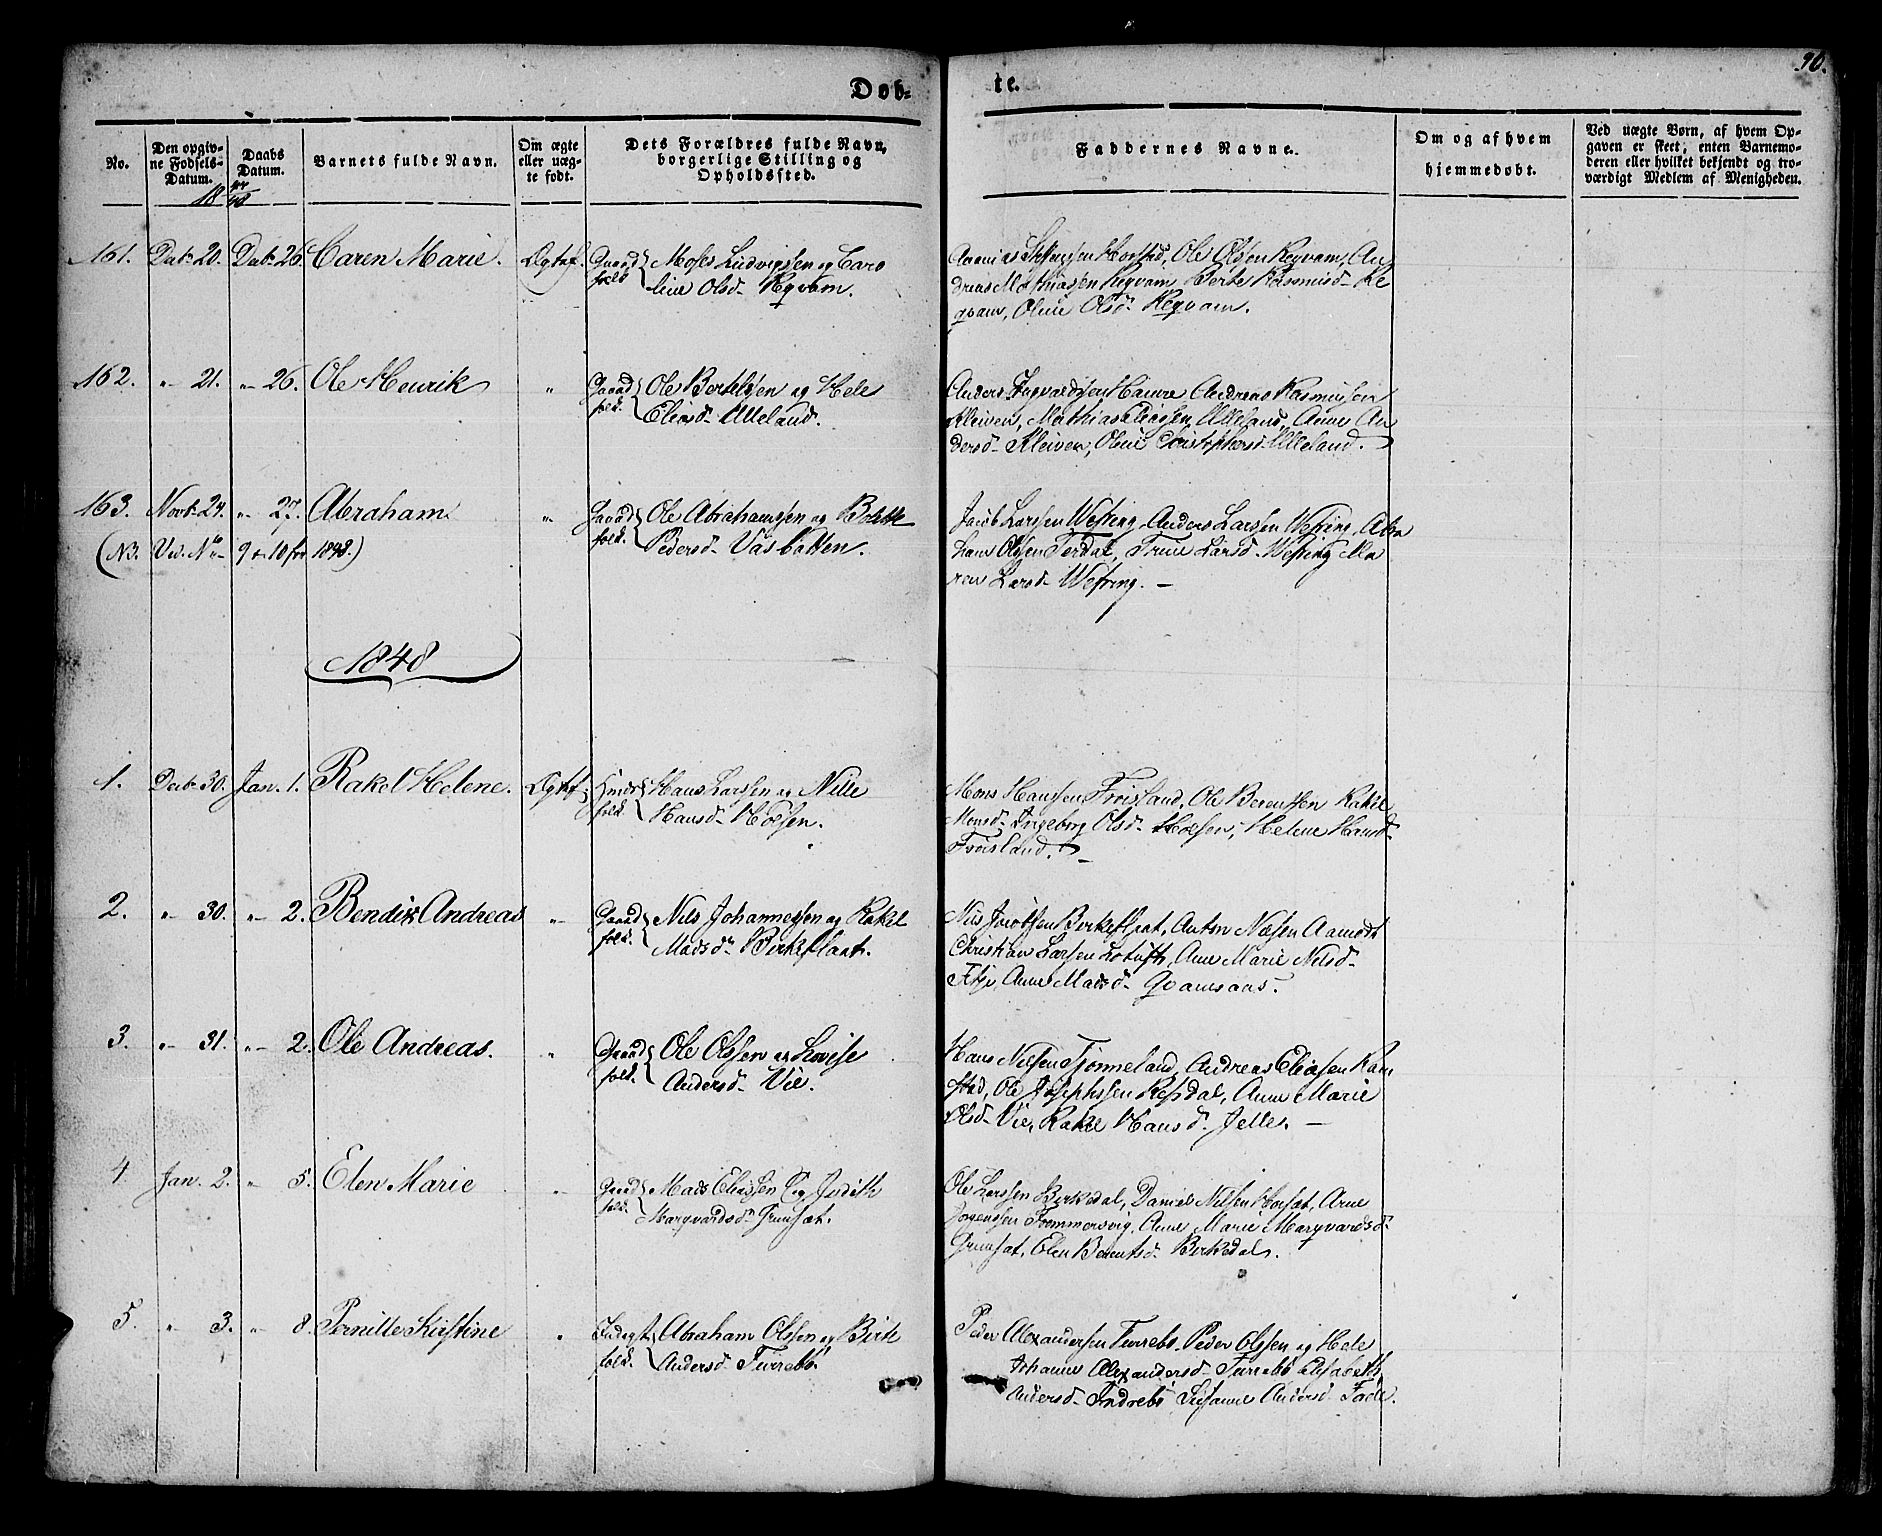 Døb=
te.
70.
No.
Den opgiv-
ne Fødsels-
Datum.
Daabs
Datum.
Barnets fulde Navn.
Om ægte
eller uæg-
te født.
Dets Forældres fulde Navn,
borgerlige Stilling og
Opholdssted.
Faddernes Navne.
Om og af hvem
hjemmedøbt.
Ved uægte Børn, af hvem Op-
gaven er skeet; enten Barnemo-
deren eller hvilket bekjendt og tro-
værdigt Medlem af Menigheden.
18 47/48
161. Decb. 20. Decb. 26. Caren Marie. Ægtef. Gaard Moses Ludvigssen og Caro
folk line Olsd. Reqvam.
Horstad, Ole Olssen Reqvam, An
dreas Mathiassen Reqvam, Berte Rasmusd. Re
qvam, Oline Olsd. Reqvam.
162. " 21. " 26. Ole Henrik " Gaard Ole Bertelssen og Hele
folk. Eliasd. Ulleland.
Anders Ingvaldssen Havre, Andreas Rasmussen
Kleiven, Mathias Eliassen Ulleland, Anne An
dersd. Kleiven, Oline Christophersd. Ulleland.
163. Novb. 24. " 27. Abraham. " Gaard Ole Abrahamssen og Bolette
folk. Pedersd. Vasbotten.
(NB. Vid. No. 9 & 10 for 1848.)
Jacob Larssen Wefring, Anders Larssen Wefring, Abra
ham Olssen Ferdal, Trine Larsd. Wefring, Ma
ren Larsd. Wefring. —
1848
1. Decb. 30. Jan. 1. Rakel Helene. Ægtef. Hans Larssen og Nille
folk Hansd. Hoesen.
Mons Hanssen Frøisland, Ole Berentsen Rakel
Monsd. Ingeborg Olsd. Hoesen, Helene Hansd.
Frøisland. —
2. " 30. " 2. Bendix Andreas " Gaard Nils Johannessen og Rakel
folk. Madsd. Birkeflaat.
Nils Jacobssen Birkeflaat, Anton Nilsen Aamodt
Christian Larssen Lotuft, Anne Marie Nilsd.
Anne Madsd. Qvamsaas.
3. " 31. " 2. Ole Andreas. " Gaard Ole Olssen og Lovise
folk. Andersd. Vie.
Hans Nilssen Tjønneland, Andreas Eliassen Ram
stad, Ole Josephssen Resdal, Anne Marie
Olsd. Vie, Rakel Hansd. Jelle. —
4. Jan. 2. " 5. Elen Marie " Gaard Mads Eliassen og Judith
folk. Marqvardsd. Grimsæt.
Ole Larssen Birkedal, Daniel Nilssen Horsæt, Arne
Jørgenssen Tommersvig, Anne Marie Marqvardsd.
Grimsæt, Elen Berentsd. Birkedal.
5. " 3. " 8. Pernille Kirstine " Inderst Abraham Olssen og Birte
folk. Andersd. Furrebø.
Peder Alexandersen Furrebø, Peder Olssen og Hele
Johanne Alexandersd. Furrebø Elisabeth
Andersd. Indrebø Susanne Andersd. Farle.